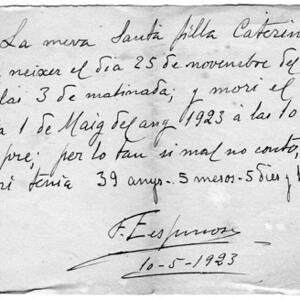 La meva Santa filla Caterin
neixer el dia 25 de novembre del
las 3 de matinada; y morí el
1 de Maig del any 1923 á las 10
pre; per lo tan si mal no conto,
tenia 39 anys-5 mesos-5 dies y
F. Espinos
10-5-1923